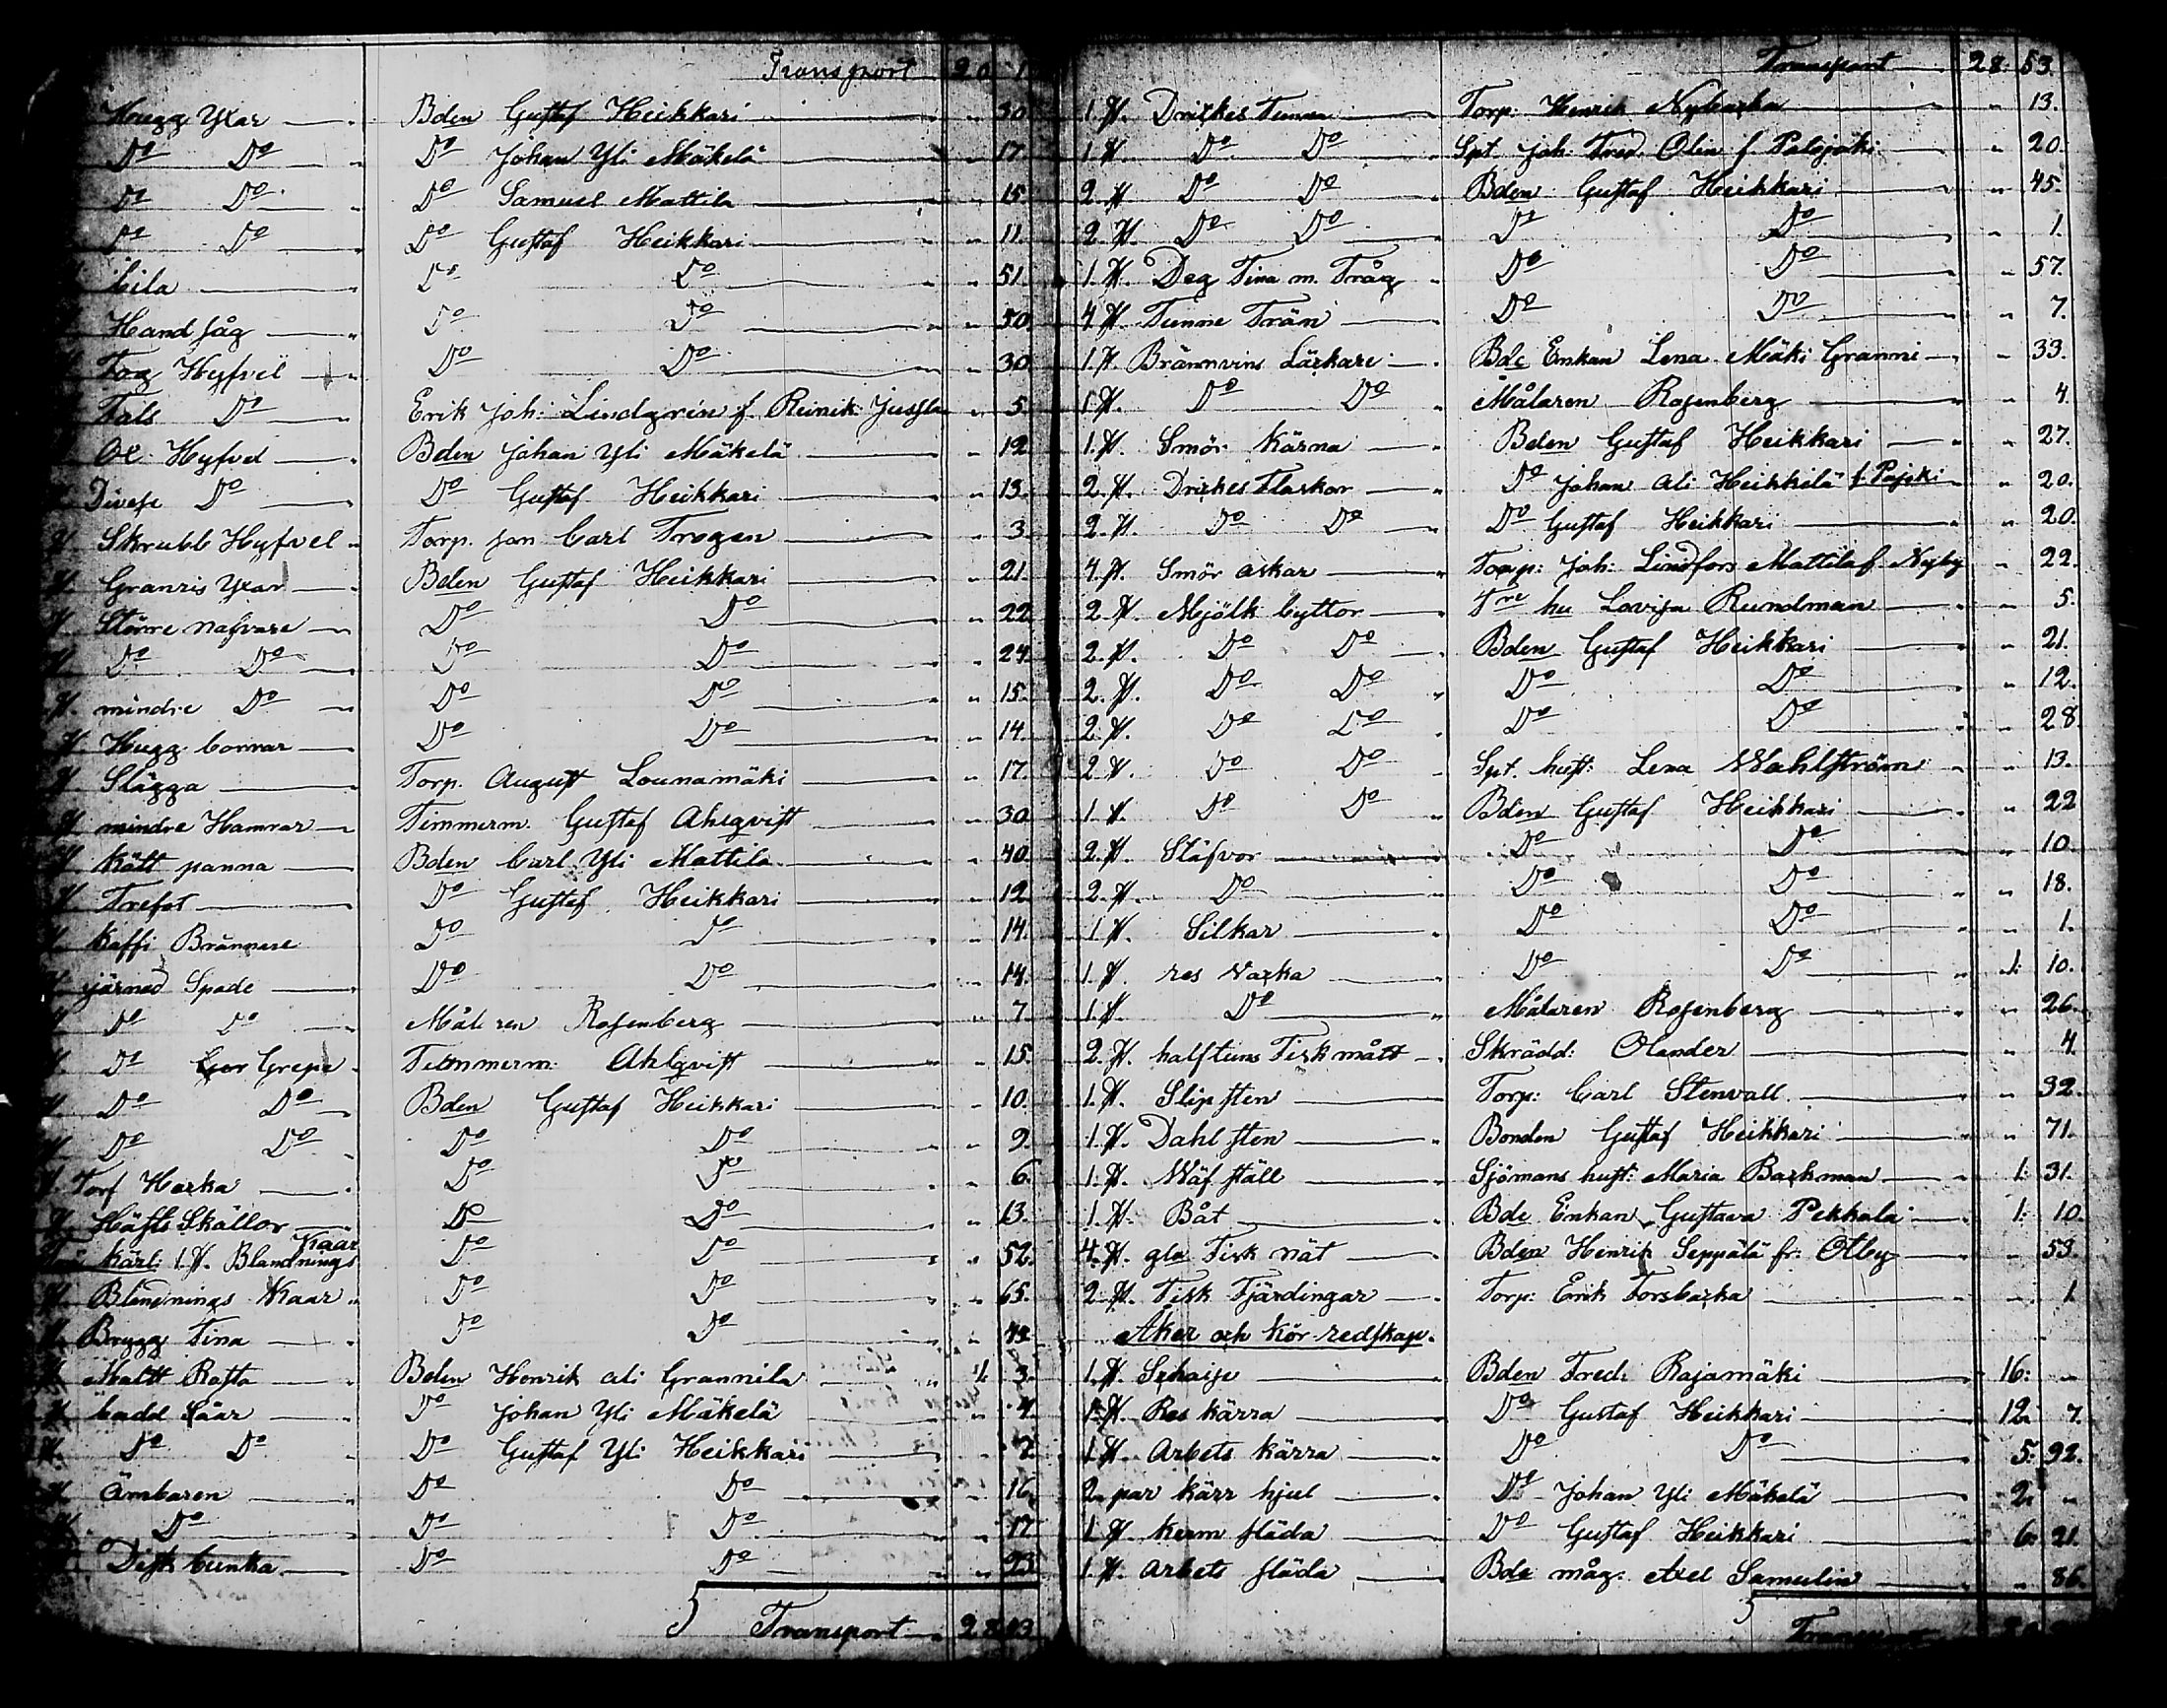 Transport 20 1
Hugg Yxar Bden Gustaf Heikkari " 30
Do Do Do Johan Yli Mäkelä " 17
Do Do Do Samuel Mattila " 15
Do Do Do Gustaf Heikkari " 11
bila Do Do " 51
Hand såg Do Do " 50
Fog Hyfvel Do Do " 30
Fals Do Erik Joh: Lindgrén f. Reinik: Jussila " 5
Hyfvel Bden Johan Yli Mäkelä " 12
Diverse Do Do Gustaf Heikkari " 13
Skrubb Hyfvel Torp. Jon Carl Trogen " 3
Granris Yxor Bden Gustaf Heikkari " 21
Större nafvare Do Do " 22
Do Do Do Do " 24
mindre Do Do Do " 15
Hugg borrar Do Do " 14
Slägga Torp. August Lounamäki " 17
mindre Hamrar Timmerm. Gustaf Ahlqvist " 30
Kött panna Bden Carl Yli Mattila " 40
Trefot Do Gustaf Heikkari " 12
Kaffi Brännare Do Do " 14
järnad Spade Do Do " 14
Do Do Målaren Rosenberg " 7
Do Gör Grepe Timmerm: Ahlqvist " 15
Do Do Bden Gustaf Heikkari " 10
Do Do Do Do " 9
Torf Harka Do Do " 6
Häfts Skållor Do Do " 13
Trä kärl: 1. st. Blandnings Kaar Do Do " 52
Blandnings Kaar Do Do " 65
Brygg Tina Do Do "
Maltt Rosta Bden Henrik ali Grannila 1. 3
badd Såar Do Johan Yli Mäkelä " 4
Do Do Do Gustaf Yli Heikkari " 7
Ämbaren Do Do " 16
Do Do Do " 17
Disk bunka Do Do " 23
Transport 28 53
Transport 28 53
1. st. Drickes Tunna Torp: Henrik Nybacka " 13.
1 st. Do Do Spt Joh: Fred. Olin f. Palojoki " 20.
2. st Do Do Bden Gustaf Heikkari " 45.
2. st. Do Do Do Do " 1.
1. st. Deg Tina m. Tråg Do Do " 57.
4 st. Tunne Trän Do Do " 7.
1. st. Brännvins Läckare Bde Enkan Lena Mäki Granni " 33.
1 st. Do Do Målaren Rosenberg " 4.
1. st. Smör Kärna Bden Gustaf Heikkari " 27.
2. st. Drickes Flaskor Do Johan ali Heikkilä f. " 20.
2. st. Do Do Do Gustaf Heikkari " 20.
4. st. Smör askar Torp: Joh: Lindfors Mattila f. Nyby " 22.
2. st. Mjölk byttor hu Lovisa Rundman " 5.
2. st. Do Do Bden Gustaf Heikkari " 21.
2. st. Do Do Do Do " 12.
2. st. Do Do Do Do " 28.
2 st. Do Do Spt. hust: Lena Wahlström " 13.
1. st. Do Do Bden Gustaf Heikkari " 22
2. st. Stäfvor Do Do " 10.
2. st. Do Do Do " 18.
1 st. Silkar Do Do " 1.
1. st. res Vacka Do Do 1. 10.
1. st. Do Målaren Rosenberg " 26.
2. st. halftuns Fisk mått Skrädd: Olander " 4.
1. st. Slipsten Torp: Carl Stenvall " 32.
1. st. Dahlsten Bonden Gustaf Heikkari " 71.
1. st. Wäf ställ Sjömans hust: Maria Backman 1. 31.
1. st. Båt Bde Enkan Gustava Pekkala 1. 10.
4. st. gla Fisk nät Bden Henrik Seppälä fr: Otby " 53.
2. st. Fisk Fjärdingar Torp: Erik Forsbacka " 1
Åker och Kör redskap.
1. st. Schaise Bden Fred: Rajamäki 16: "
1. st. Res kärra Do Gustaf Heikkari 12. 7.
1. st. Arbets kärra Do Do 5. 92.
2. par kärr hjul Do Johan Yli Mäkelä 2. "
1 st. Kurm släda Do Gustaf Heikkari 6. 21.
1. st. Arbets släda Bde måg. Axel Samulin " 86.
Transport